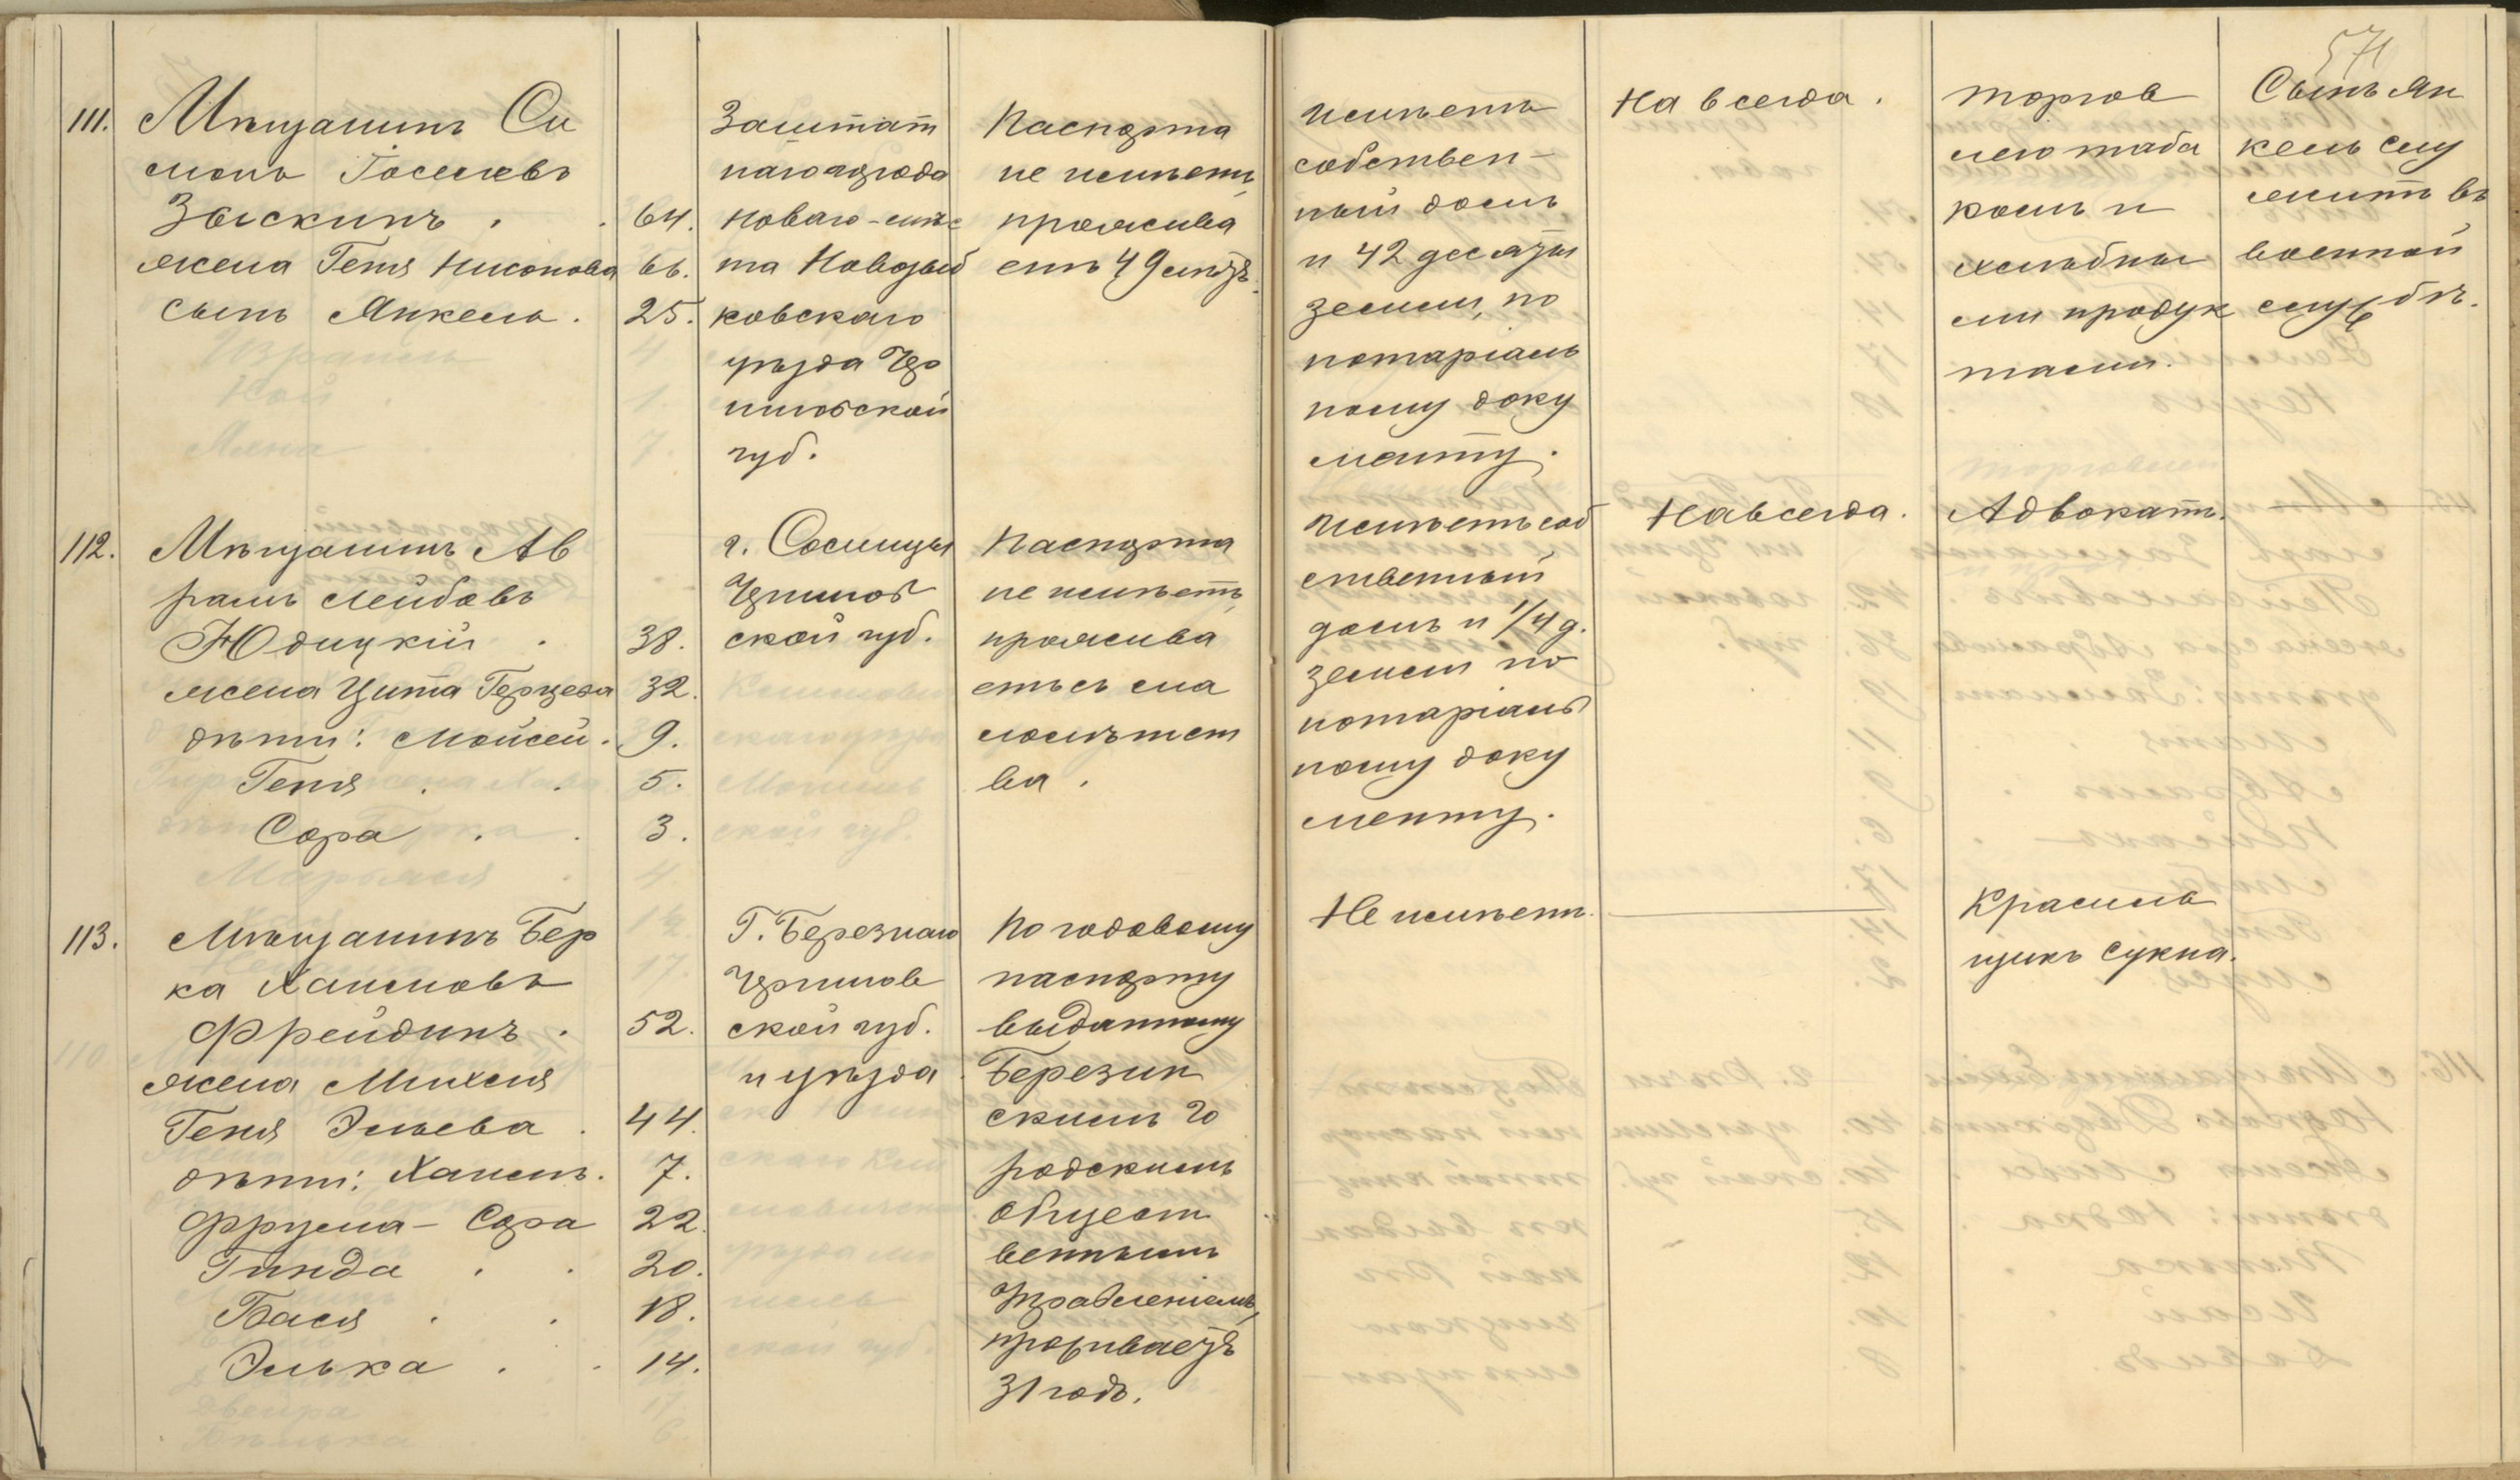 571
111.
Мѣщанинъ Си
монъ Іоселевъ
Зыскинъ . . 64.
жена Геня Нисонова 66.
сынъ Янкель . 25.
Заштат
наго города
Новаго-мѣс
та Новозыб
ковскаго
уѣзда Чер
ниговской
губ.
Паспорта
не имѣетъ,
прожива
етъ 49 лѣтъ.
Имѣетъ
собствен-
ный домъ
и 42 десятин
земли, по
нотаріаль
ному доку
менту.
На всегда.
Торгов
лею таба
комъ и
хлѣбны
ми продук
тами.
Сынъ Ян
кель слу
житъ въ
военной
службѣ.
112.
Мѣщанинъ Ав
рамъ Лейбовъ
Юдицкій . 38.
жена Цита Герцева 32.
дѣти: Мойсей . 9.
Геня . . 5.
Сора . . 3.
г. Сосницы
Чернигов
ской губ.
Паспорта
не имѣетъ,
прожива
етъ съ ма
лолѣтст
ва.
Имѣетъ соб
ственный
домъ и 1/4 д.
земли по
нотаріаль
ному доку
менту.
Навсегда.
Адвокатъ.
113.
Мѣщанинъ Бер
ка Хаимовъ
Фрейдинъ . 52.
жена Михля
Геня Эльева . 44.
дѣти: Хаимъ . 7.
Фрума - Сора 22.
Гинда . . 20.
Бася . . 18.
Элька . . 14.
Г. Березнаго
Чернигов
ской губ.
и уѣзда
По годовому
паспорту
выданному
Березин
скимъ Го
родскимъ
Общест
веннымъ
Управленіемъ,
проживаетъ
31 годъ.
Не имѣетъ.
Красиль
щикъ сукна.